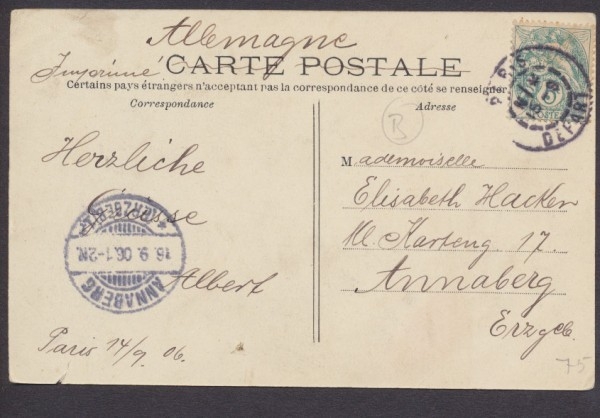 Allemagne
Imprimé
CARTE POSTALE
Certains pays étrangers n'acceptant pas la correspondance de ce côté se renseigner
Correspondance
Adresse
B
PARIS
DEPART
5
POSTE
Herzliche
Grüsse
Albert
Paris 14/9 06.
ANNABERG
16.9.06.1-2N.
* (ERZGEBIRGE) *
Mademoiselle
Elisabeth Hacker
Kl. Karteng. 17.
Annaberg
Erzgeb.
75